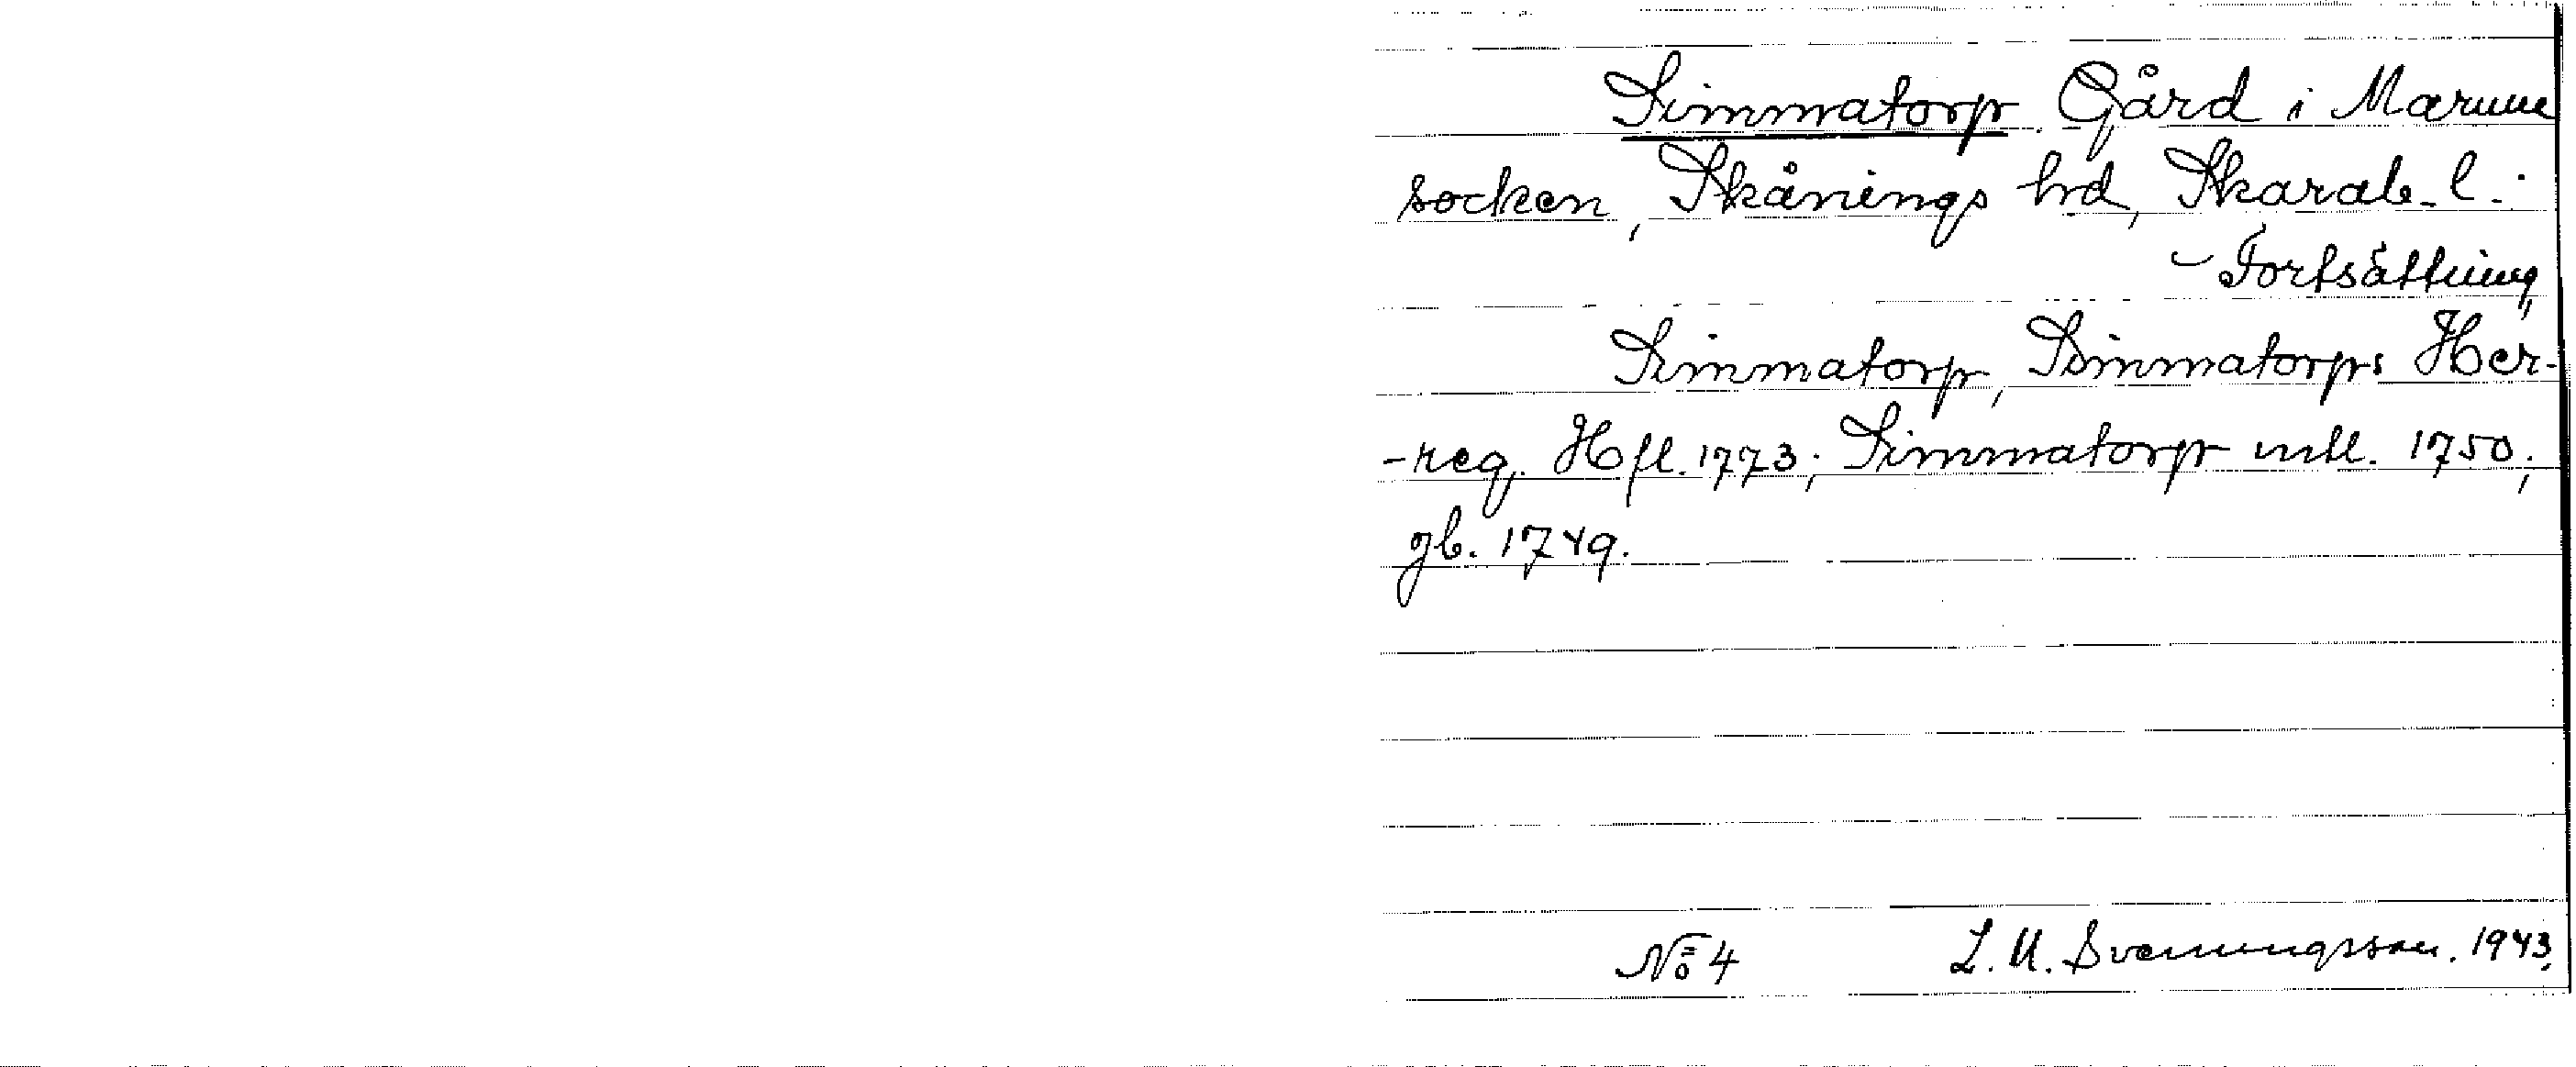 Simmatorp. Gård i Marums
socken, Skånings hrd, Skarab. l.:
- Fortsättning
Simmatorp, Simmatorps Her-
-reg. Hfl. 1773; Simmatorp mtl. 1750;
gb. 1749.
No 4 L. U. Svenungsson. 1943.